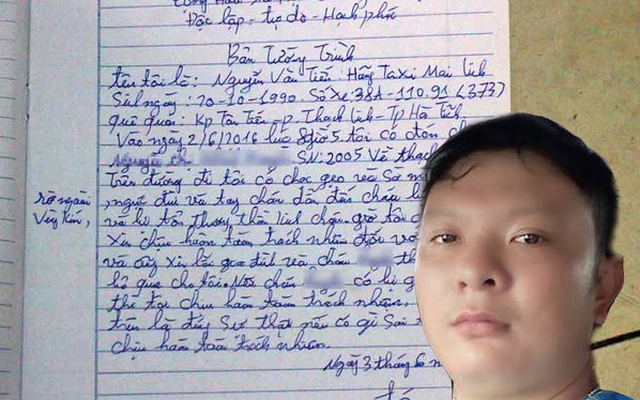 Cộng Hòa
Độc lập - tự do - Hạch phúc
Bản Tường Trình
tên tôi là: Nguyễn Văn Tiến Hãng Taxi Mai Linh
Sinh ngày: 20-10-1990. Số xe: 38A-110.91 (373)
quê quán: Kp Tân Tiến - p. Thạch Linh - Tp Hà Tĩnh
Vào ngày 2/6/2016 lúc 8giờ5. tôi có đón
SN: 2005 Về thạch
Trên đường đi tôi có chọc gẹo và Sờ
, ngực đùi và tay chân dẫn đến cháu
rờ ngoài
và bị tổn thương, thần kinh
Vùng Kín,
Xin chịu hoàn toàn trách nhiệm đối
và cũng xin bác gia đình và cháu
bỏ qua cho tôi. Nếu cháu có bị
thì tôi chịu hoàn toàn trách nhiệm,
trên là đúng Sự thật nếu có gì Sai
chịu hoàn toàn trách nhiệm.
Ngày 3 tháng 6